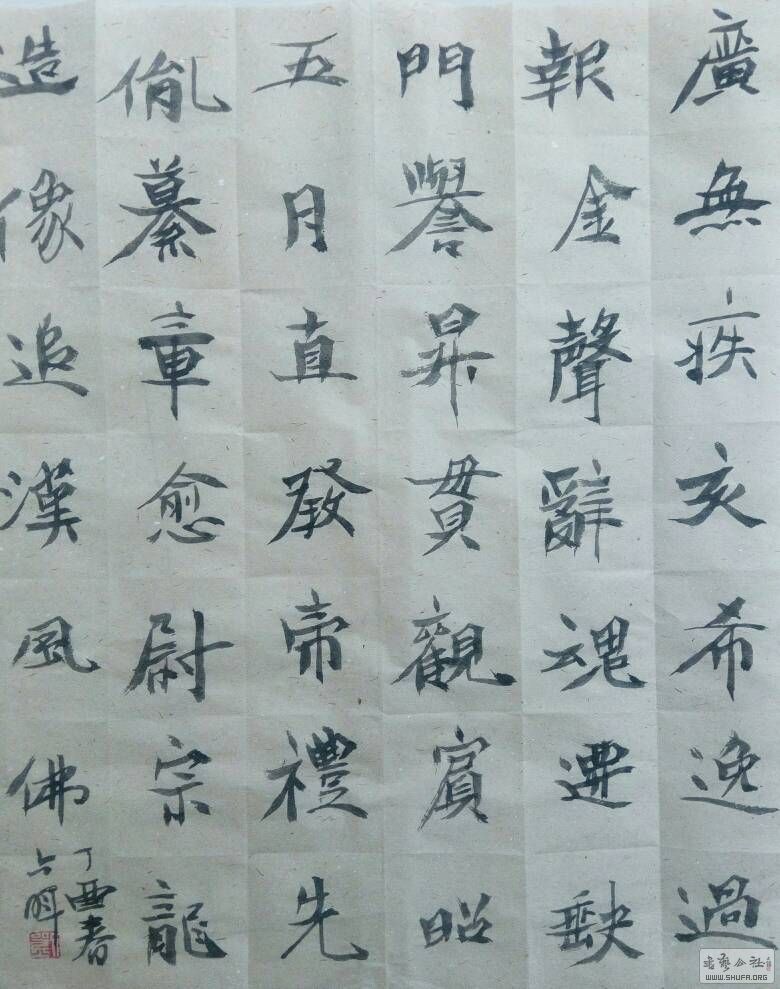 廣無疾亥希逸過
報金聲辭魂缺
門譽昇貫觀賓昭
五月直發帝禮先
胤章愈尉宗龍
造像追漢風佛
丁酉春
書藝公社
WWW.SHUFA.ORG